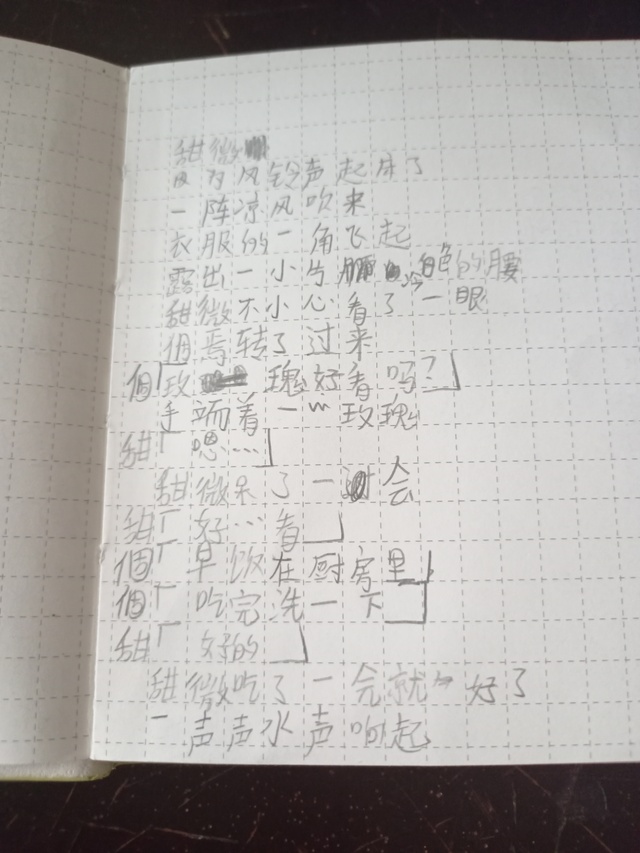 甜微
风铃声起床了
一阵凉风吹来
衣服的一角飞起
露出一小片白色的腰
甜微不小心看了一眼
個焉转了过来
個「玫瑰好看吗?」
手端着一玫瑰
甜「嗯…」
甜微呆了一会
甜「好…看」
個「早饭在厨房里」
個「吃完洗一下」
甜「好的」
甜微吃了一会就好了
一声声水声响起